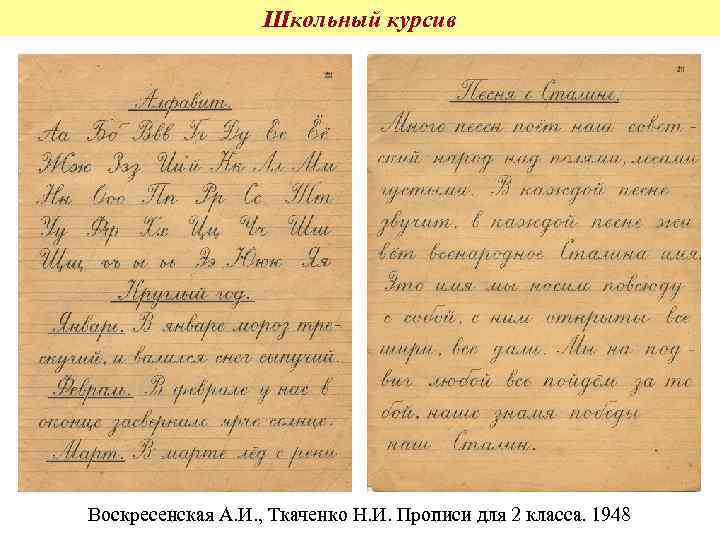 Школьный курсив
23
Алфавит.
Аа Бб Ввв Гг Дд Ее Ёё
Жжж Ззз Ий й Кк Лл Мм
Нн Ооо Пп Рр Сс Жт
Уу Ффр Хх Цц Чч Шш
Щщ ъъ ы ьь Ээ Ююю Яя
Круглый год.
Январь. В январе мороз тре-
скучий, и валился снег сыпучий.
Февраль. В феврале у нас в
оконце засверкало ярче солнце.
Март. В марте лёд с реки
Песня о Сталине.
Много песен поёт наш совет-
ский народ над полями, лесами
густыми. В каждой песне
звучит, в каждой песне жи
вёт всенародное Сталина имя.
Это имя мы носим повсюду
с собой, с ним открыты все
шири, все дали. Мы на под-
виг любой все пойдём за то
бой, наше знамя победы
наш Сталин.
Воскресенская А.И., Ткаченко Н.И. Прописи для 2 класса. 1948